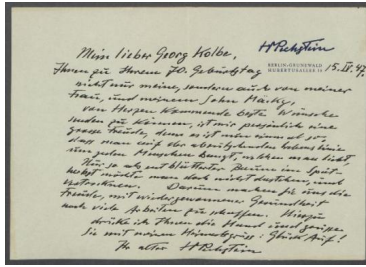 HPechstein
BERLIN-GRUNEWALD
HUBERTUSALLEE 18
15. IV. 47.
Mein lieber Georg Kolbe,
Ihnen zu Ihrem 70. Geburtstag
nicht nur meine, sondern auch von meiner
Frau, und meinem Sohn Mäcky,
von Herzen kommende beste Wünsche
senden zu können, ist mir persönlich eine
grosse Freude, denn es ist nun einmal so
dass man auf der absteigenden Lebenslinie
um jeden Menschen bangt, welchen man liebt.
Nur so als entblätterter Baum im Spät-
herbst möchte man doch nicht dastehen, und
vertrocknen. Darum machen Sie uns die
Freude, mit wiedergewonnener Gesundheit
noch viele Arbeiten zu schaffen. Hierzu
drücke ich Ihnen die Hand und grüsse
Sie mit meinem Heimatgruss: Glück Auf!
Ihr alter HPechstein